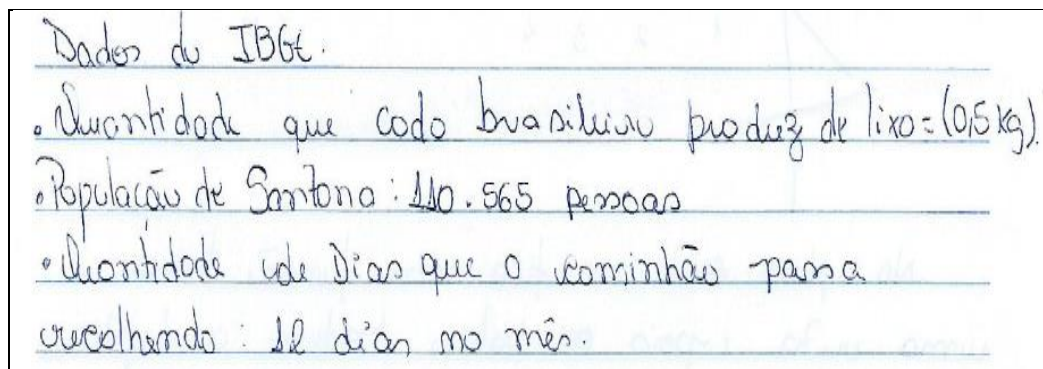 Dados do IBGE.
• Quantidade que cada brasileiro produz de lixo = (0,5 kg).
• População de Santana: 110.565 pessoas
• Quantidade de Dias que o caminhão passa
recolhendo: 12 dias no mês.